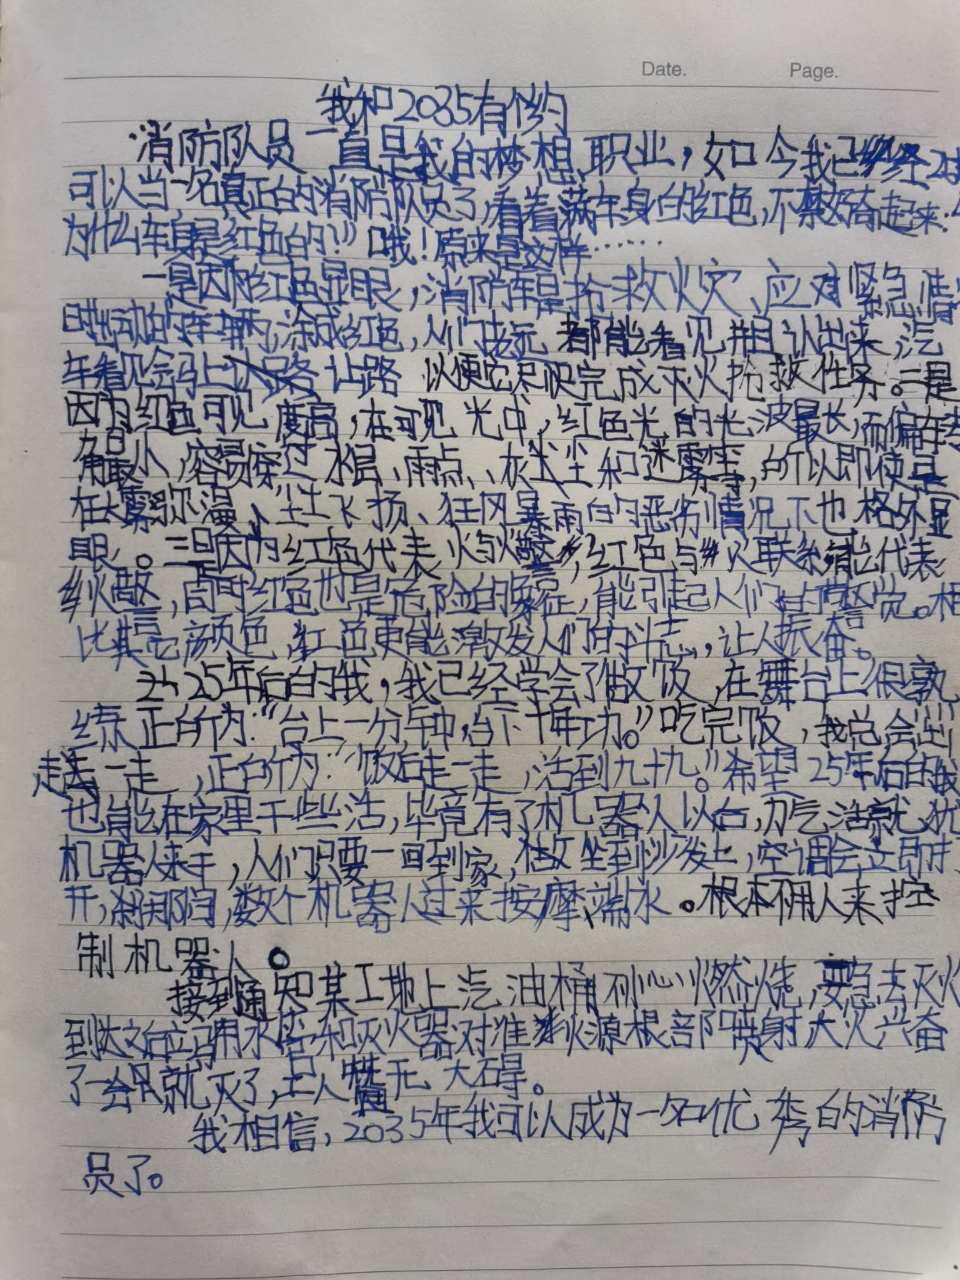 Date. Page.
我和2035有个约
消防队员一直是我的梦想职业，如今我已经
可以当一名真正的消防队员了，看着满车身的红色，不禁好奇起来：“
为什么车身是红色的？”哦！原来是这样……
一是因为红色显眼，消防车是抢救火灾、应对紧急情
时出动的车辆，涂成红色，人们老远都能看见并且认出来，汽
车看见会马上让路以便它尽快完成灭火抢救任务。二是
因为红色可见度高，在可见光中，红色光的光波最长，而偏转
角最小，容易穿过水层、雨点、灰尘和迷雾等，所以即使是
在大雾弥漫、尘土飞扬、狂风暴雨的恶劣情况下也格外显
眼。三是因为红色代表火与火警，红色与火联系能代表
火警，同时红色也是危险的象征，能引起人们的警觉。相
比其它颜色，红色更能激发人们的斗志，让人振奋。
25年后的我，我已经学会了做饭，在舞台上很熟
练正所为：“台上一分钟，台下十年功。”吃完饭，我总会出
走一走，正所为：“饭后走一走，活到九十九。”希望25年后的我
也能在家里干些活，毕竟有了机器人以后，力气活就就
机器人来干，人们只要一回到家，做坐到沙发上，空调会立即打
开，刹那间，数个机器人过来按摩、端水。根本不用人来控
制机器人。
接到通知某工地上汽油桶不小心燃烧，要急去灭火
到达之后立马用水枪和灭火器对准火源根部喷射大火兴奋
了一会儿就灭了，工人暂无大碍。
我相信，2035年我可以成为一名优秀的消防
员了。